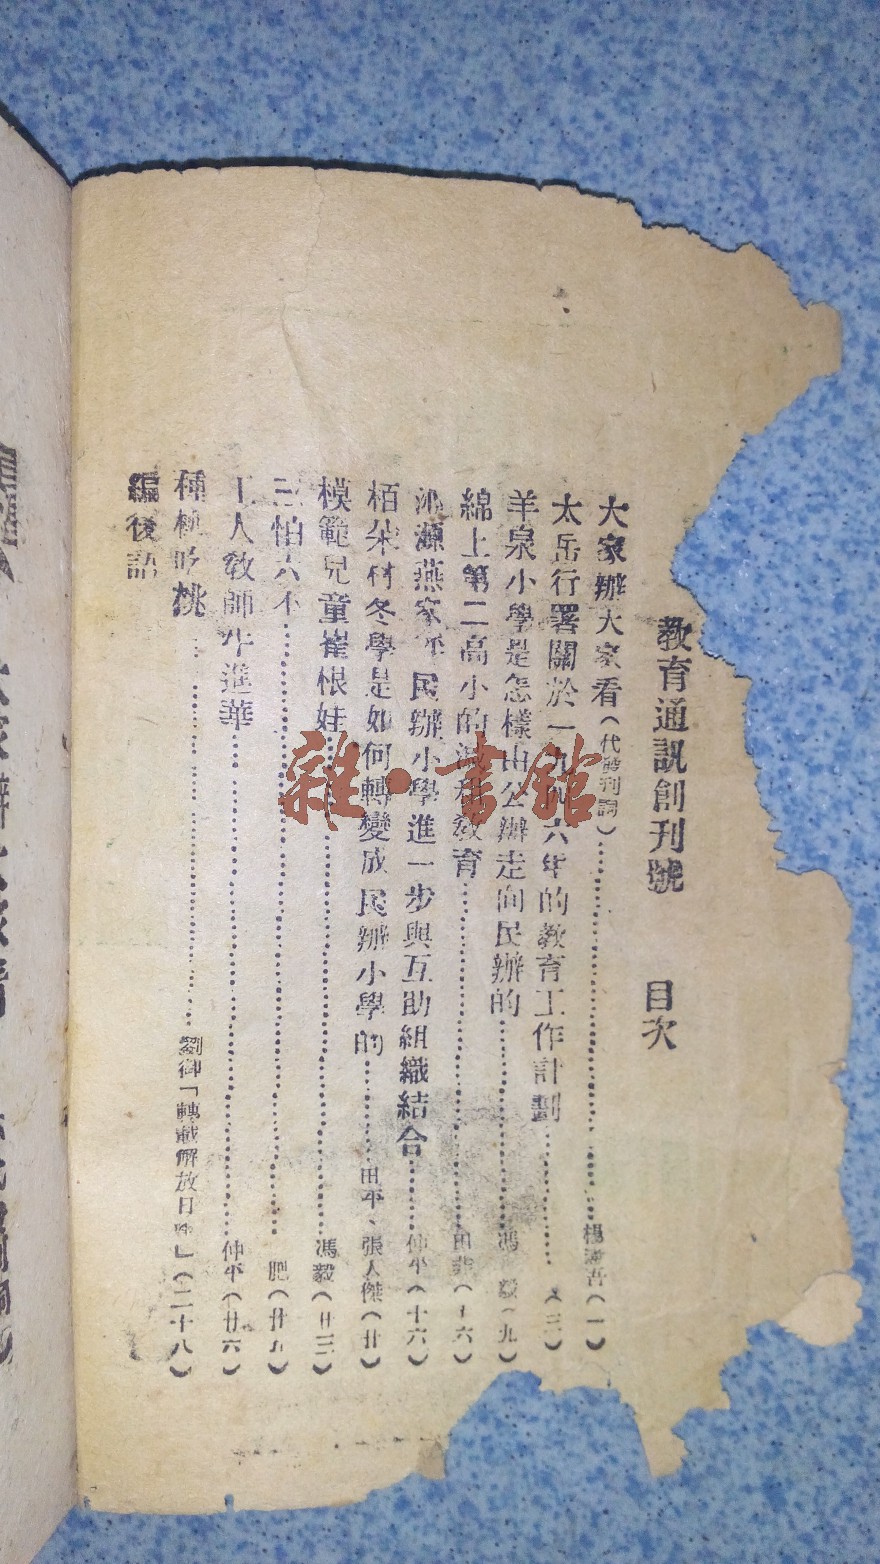 教育通訊創刊號 目次
大家辦大家看(代發刊詞)楊 吾(一)
太岳行署關於一九四六年的教育工作計劃(三)
羊泉小學是怎樣由公辦走向民辦的馮毅(九)
綿上第二高小的減租教育田 (十六)
沁源燕家 民辦小學進一步與互助組織結合仲平(十六)
栢朵村冬學是如何轉變成民辦小學的田平、張人傑(廿)
模範兒童崔根娃馮毅(廿三)
三怕六不肥(廿九)
工人教師牛進華仲平(廿六)
種植 桃劉御「轉載解放日報」(二十八)
編後語
雜·書館